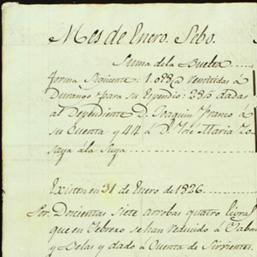 Mes de Enero. Sebo.
Suma de la Buelta
forma Siguiente. 1.088 @ remitidas à
Durango para su Expendio: 285 dadas
al Dependiente D. Joaquin Franco à
su Cuenta y 44 à D. José Maria Zo-
zaya ala Suya
Exîsten en 31 de Enero de 1826.
Por Docientas siete arrobas quatro libras
que en Febrero se han reducido à Jabon
y Velas y dado à Cuenta de Sirvientes.